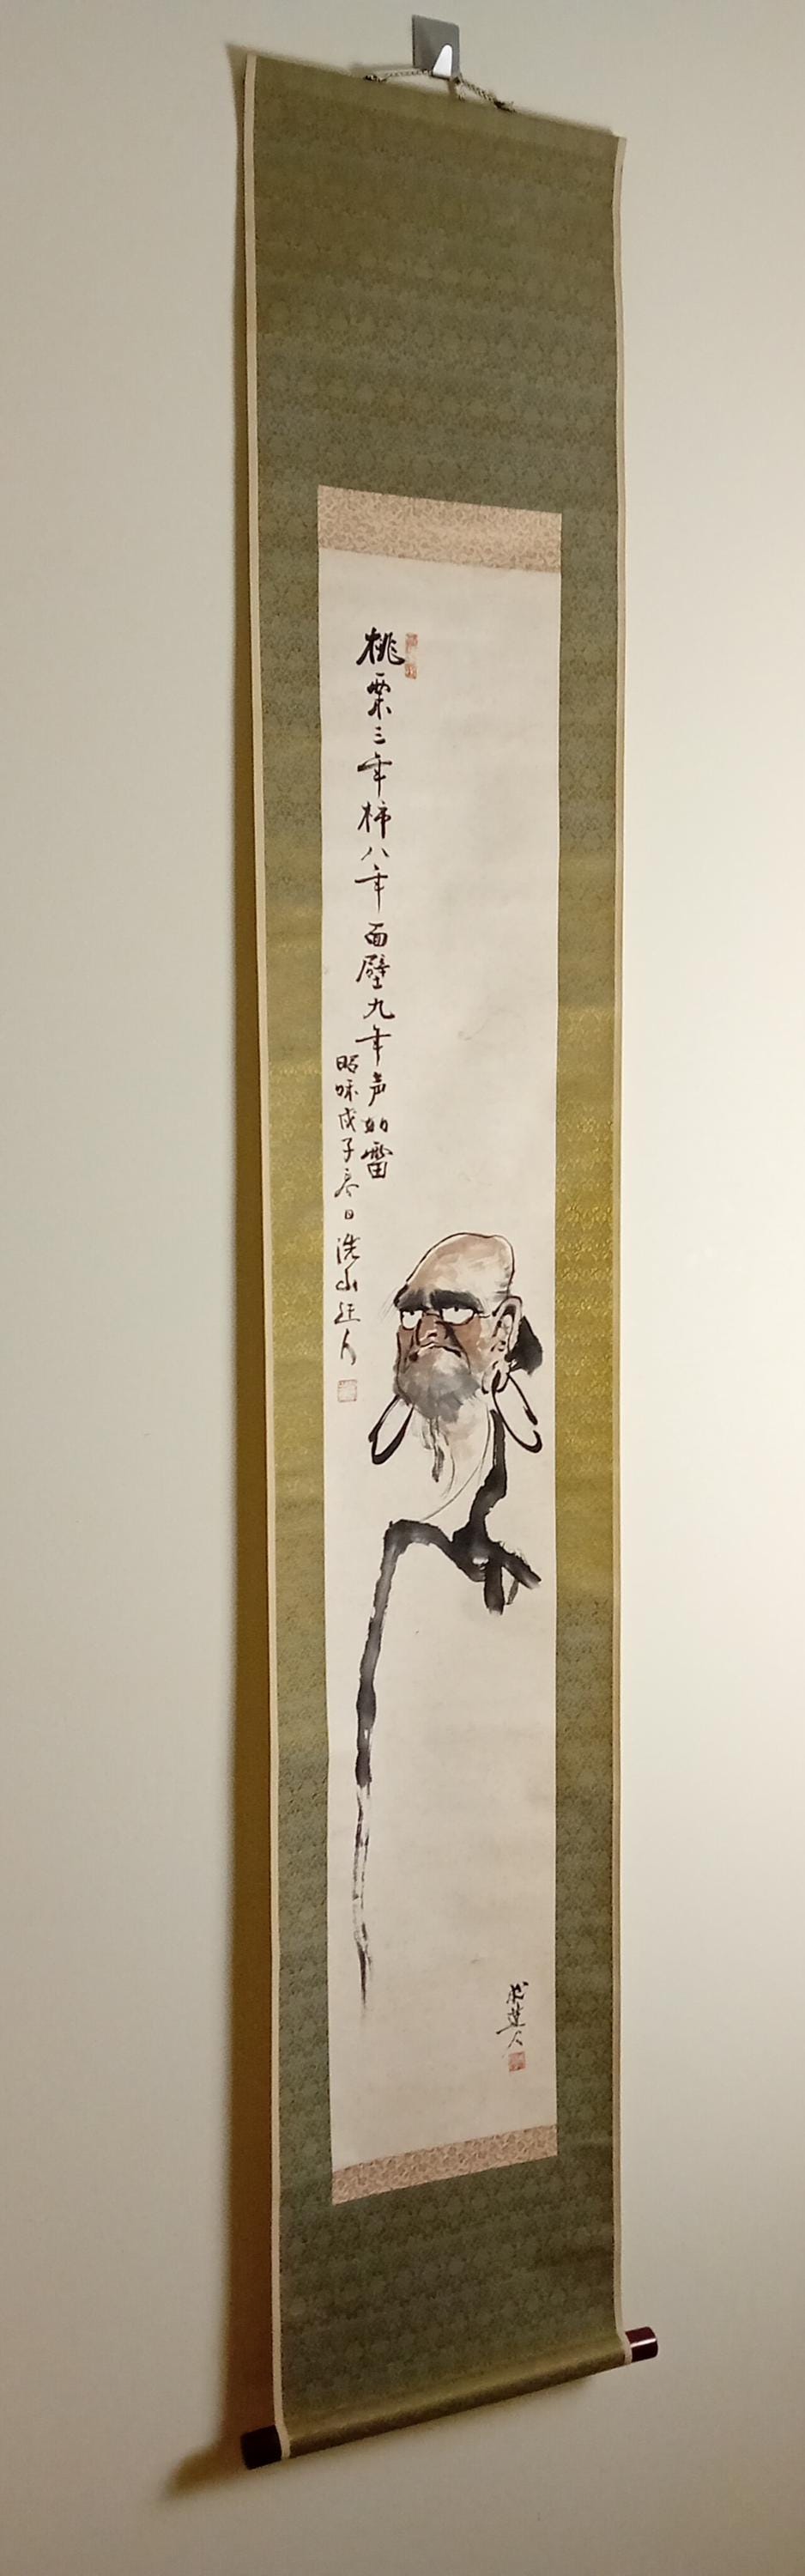 桃栗三年柿八年面壁九年声如雷
昭和戊子春日洗山狂人